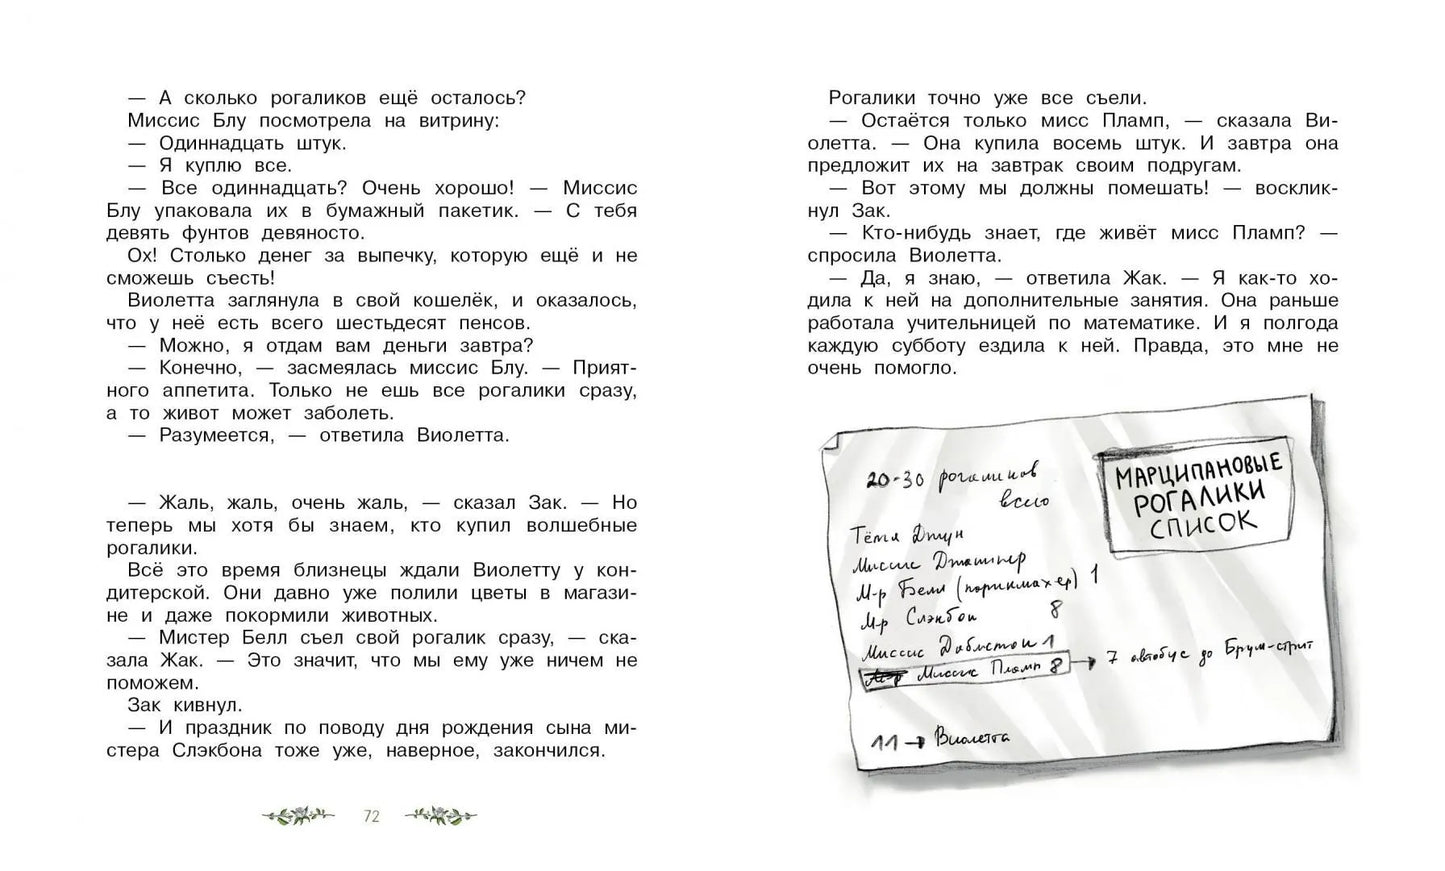 — А сколько рогаликов ещё осталось?
Миссис Блу посмотрела на витрину:
— Одиннадцать штук.
— Я куплю все.
— Все одиннадцать? Очень хорошо! — Миссис
Блу упаковала их в бумажный пакетик. — С тебя
девять фунтов девяносто.
Ох! Столько денег за выпечку, которую ещё и не
сможешь съесть!
Виолетта заглянула в свой кошелёк, и оказалось,
что у неё есть всего шестьдесят пенсов.
— Можно, я отдам вам деньги завтра?
— Конечно, — засмеялась миссис Блу. — Прият-
ного аппетита. Только не ешь все рогалики сразу,
а то живот может заболеть.
— Разумеется, — ответила Виолетта.
— Жаль, жаль, очень жаль, — сказал Зак. — Но
теперь мы хотя бы знаем, кто купил волшебные
рогалики.
Всё это время близнецы ждали Виолетту у кон-
дитерской. Они давно уже полили цветы в магази-
не и даже покормили животных.
— Мистер Белл съел свой рогалик сразу, — ска-
зала Жак. — Это значит, что мы ему уже ничем не
поможем.
Зак кивнул.
— И праздник по поводу дня рождения сына ми-
стера Слэкбона тоже уже, наверное, закончился.
72
Рогалики точно уже все съели.
— Остаётся только мисс Пламп, — сказала Ви-
олетта. — Она купила восемь штук. И завтра она
предложит их на завтрак своим подругам.
— Вот этому мы должны помешать! — восклик-
нул Зак.
— Кто-нибудь знает, где живёт мисс Пламп? —
спросила Виолетта.
— Да, я знаю, — ответила Жак. — Я как-то хо-
дила к ней на дополнительные занятия. Она раньше
работала учительницей по математике. И я полгода
каждую субботу ездила к ней. Правда, это мне не
очень помогло.
МАРЦИПАНОВЫЕ
РОГАЛИКИ
СПИСОК
20-30 рогаликов
всего
Тётя Джун
Миссис
М-р Белл (парикмахер) 1
М-р Слэкбон 8
Миссис Дабистон 1
Миссис Пламп 8 → 7 автобус до Брум-стрит
11 → Виолетта